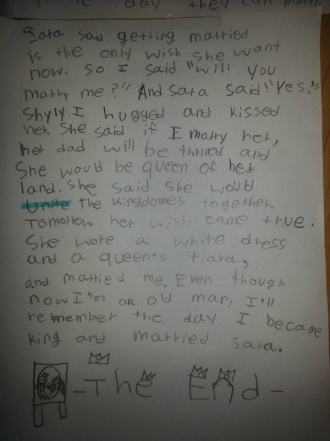 the day they can
Sara said getting married
is the only wish she want
now. So I said "will you
marry me?" And sara said "Yes."
shyly. I hugged and kissed
her. She said if I marry her,
her dad will be thrilled and
She would be queen of her
land. She said she would
unite the kingdomes together.
Tomorrow her wish came true.
She wore a white dress
and a queen's tiara,
and married me. Even though
now I'm an old man, I'll
remember the day I became
king and married sara.
- The End -